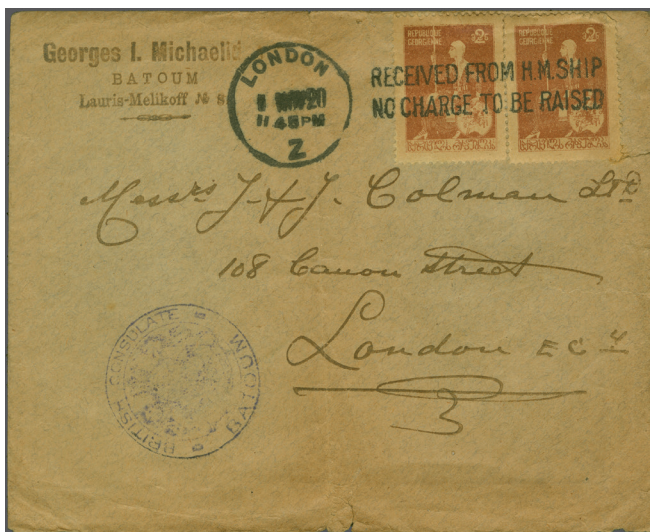 Georges I. Michaelid
BATOUM
Lauris-Melikoff № 8
LONDON
20
11 45 PM
Z
RECEIVED FROM H.M. SHIP
NO CHARGE TO BE RAISED
REPUBLIQUE
GEORGIENNE
2
REPUBLIQUE
GEORGIENNE
2
Messrs J & J. Colman Ltd
108 Canon Street
London E C 4
BRITISH CONSULATE
BATOUM